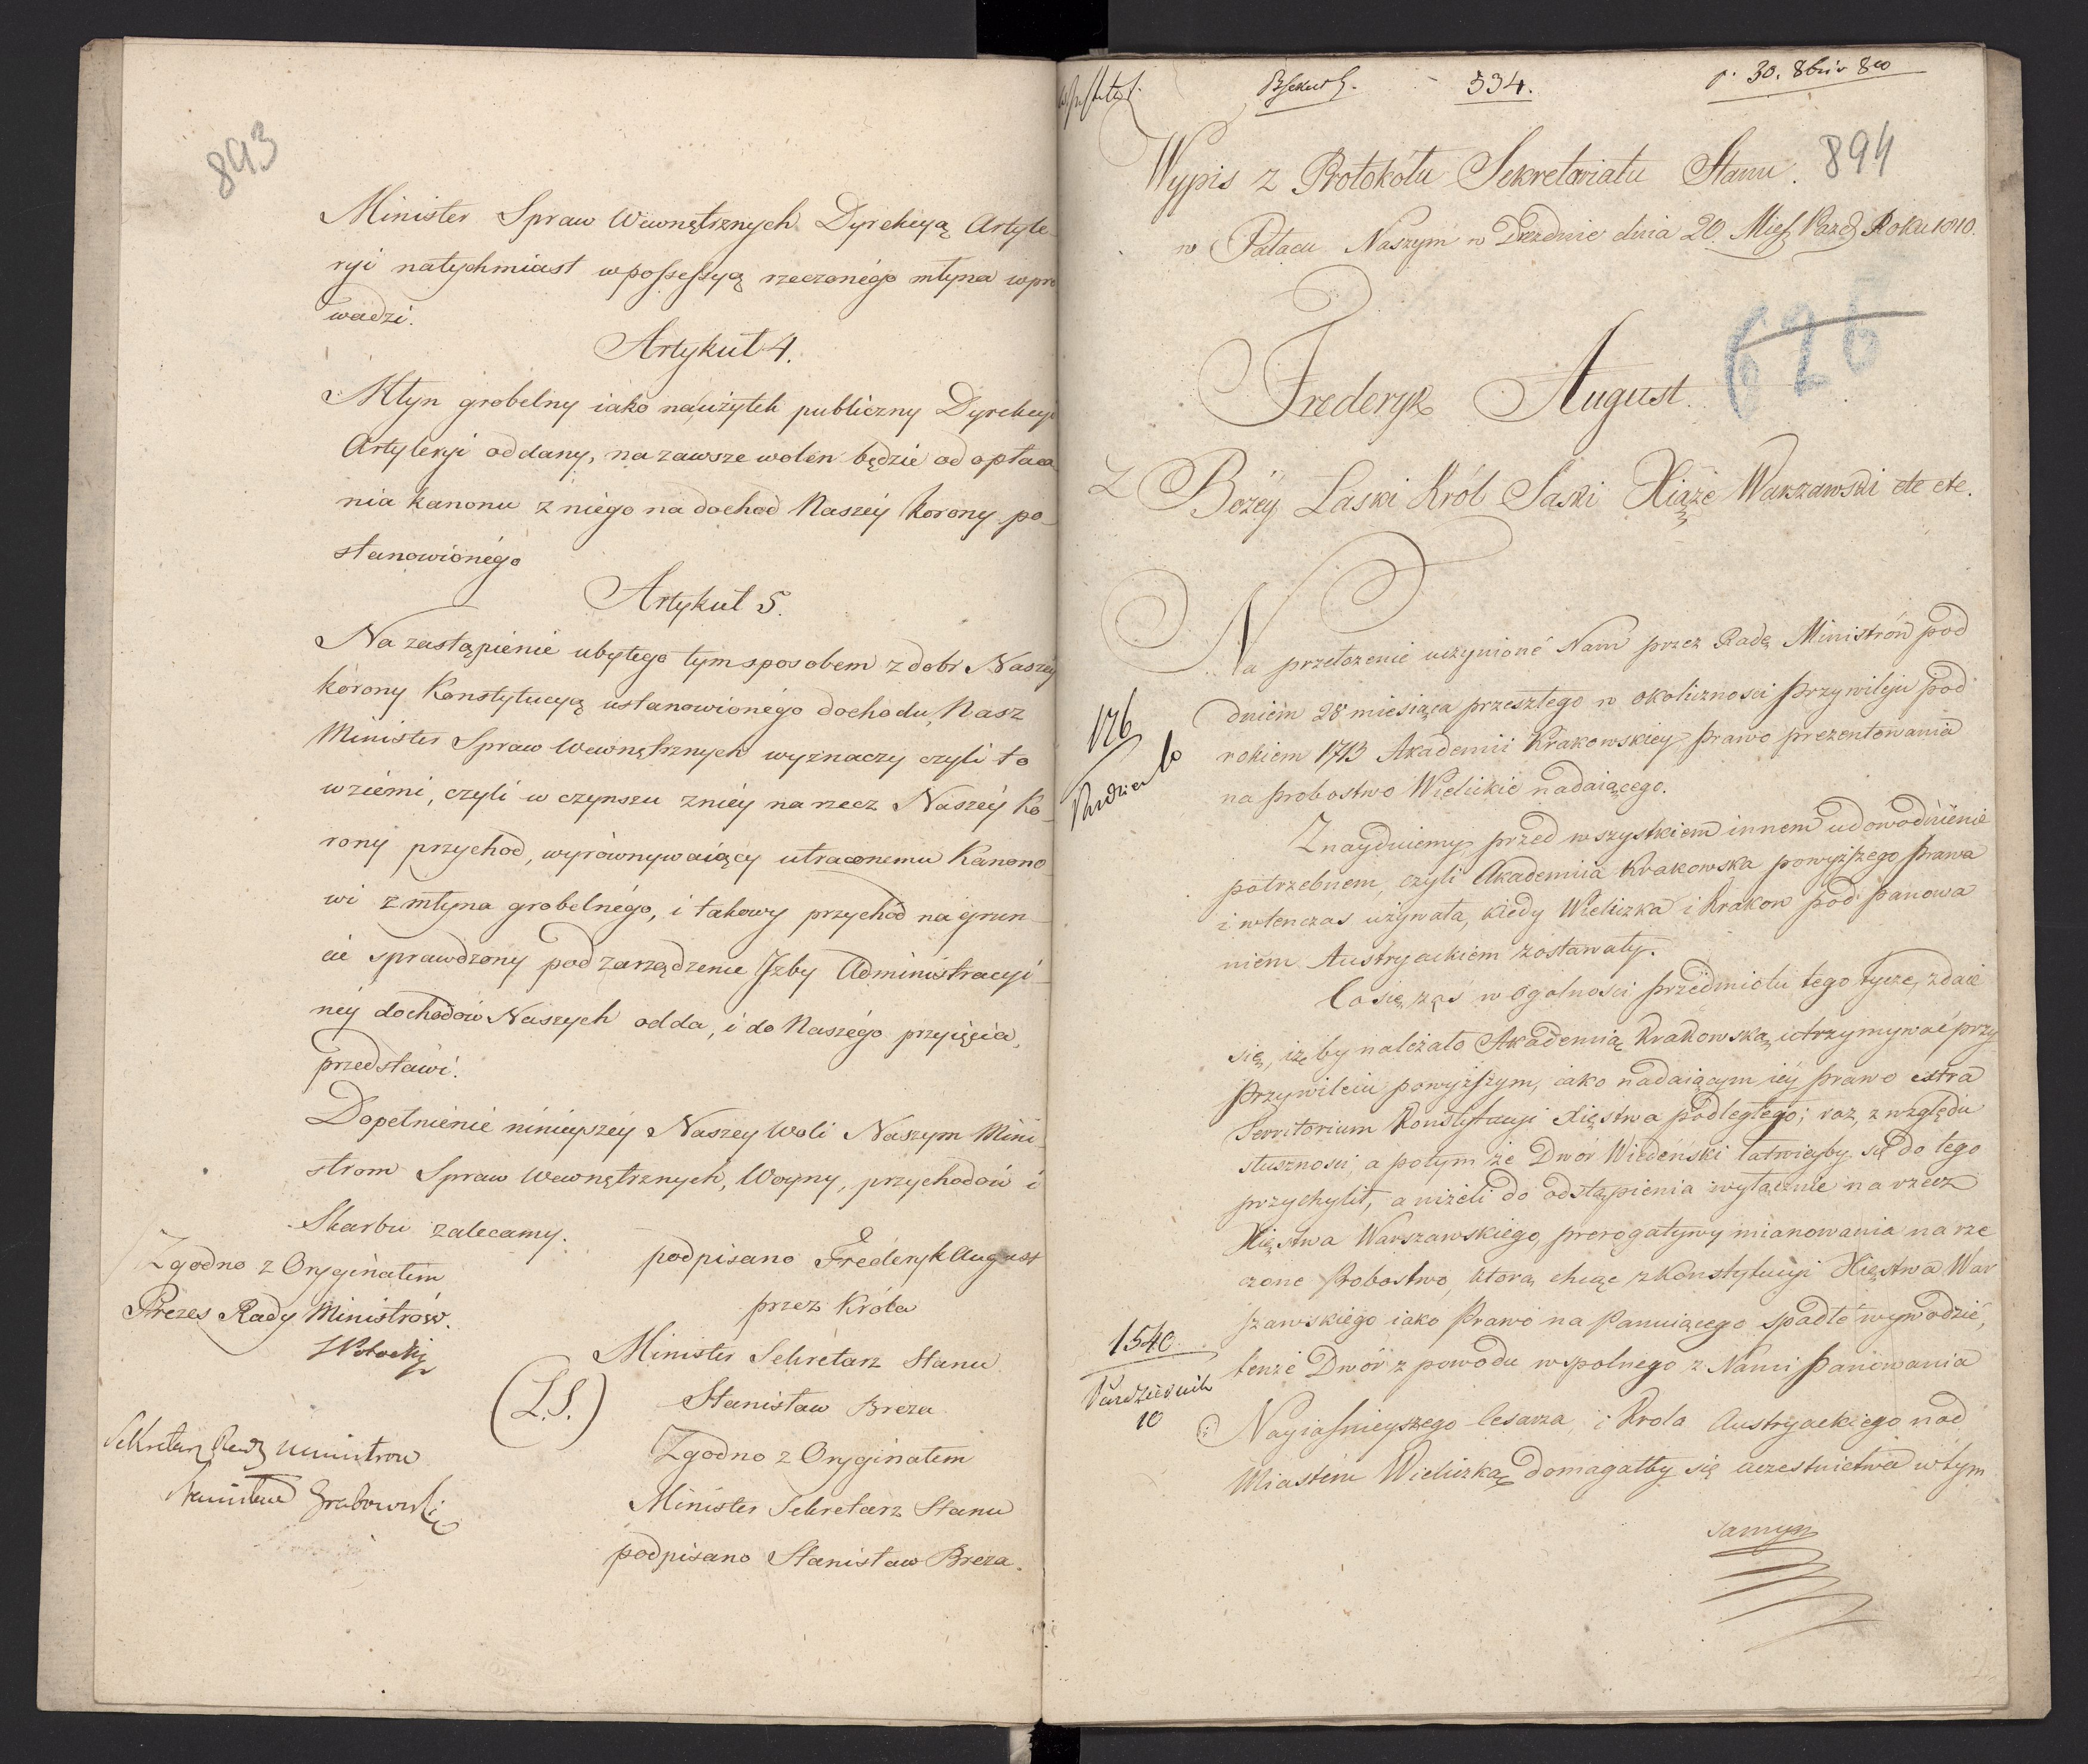 893
Minister Spraw Wewnętrznych Dyrekcyą Artyle-
ryi natychmiast w possessyą rzeczonégo młyna wpro
wadzi.
Artykuł 4.
Młyn grobelny iako na użytek publiczny Dyrekcyi
Artyleryi oddany, na zawsze wolen będzie od opłaca
nia kanonu z niego na dochod Naszéy Korony po-
stanowionégo
Artykuł 5.
Na zastąpienie ubytego tym sposobem z dobr Naszéy
korony Konstytucyą ustanowionégo dochodu, Nasz
Minister Spraw Wewnętrznych wyznaczy czyli to
w ziémi, czyli w czynszu zniéy na rzecz Naszéy Ko-
rony przychod, wyrównywaiący utraconemu Kanono
wi z młyna grobelnégo, i takowy przychód na grun-
cie sprawdzony pod zarządzenie Izby Administracyi-
néy dochodów Naszych odda, i do Naszégo przyięcia,
przedstawi.
Dopełnienie ninieyszéy Naszey Woli Naszym Mini-
strom Spraw Wewnętrznych, Woyny, przychodów i
Skarbu zalecamy.
podpisano Frederyk August
przez Króla
Minister Sekretarz Stanu
(L.S.) Stanisław Breza
Zgodno z Oryginałem
Minister Sekretarz Stanu
podpisano Stanisław Breza.
Zgodno z Oryginałem
Prezes Rady Ministrów.
Sekretarz Rady Ministrow
Stanisław Grabowski
534.
30. 8bris 810
894
Wypis z Protokołu Sekretariatu Stanu.
w Pałacu Naszym w Dreznie dnia 20. Mies. Paźd. Roku 1810.
626
Frederyk August.
Z Bożéy Laski Król Saski Xiąże Warszawski etc etc.
Na przełożenie uczynioné Nam przez Radę Ministrów pod
dniem 28 miesiąca przeszłego w okoliczności przywileju pod
rokiem 1713 Akademii Krakowskiey prawo prezentowania
na probostwo Wielickie nadaiącego.
176
Znayduiemy przed wszystkiem innem udowodnienie
potrzebnem, czyli Akademiia Krakowska powyższego prawa
i wtenczas używała, kiedy Wieliczka i Krakow pod panowa
niem Austryackiem zostawały.
Co się zaś w ogolności przedmiotu tego tycze, zdaie
się, iżeby należało Akademią Krakowską utrzymywać przy
przywileiu powyższym, iako nadaiącym iéy prawo extra
Territorium Konstytucyi Xięstwa podległego; raz, z względu
słuszności, a potym że Dwór Wiedeński łatwieyby się do tego
przychylił, a niżeli do odstąpienia wyłącznie na rzecz
Xięstwa Warszawskiego, prerogatywy mianowania na rze
czone Probostwo, którą chcąc z Konstytucyi Xięstwa War
szawskiego iako Prawo na Panuiącego spadłe wywodzić,
1540.
Pazdziernik
10
tenże Dwór z powodu wspolnego z Nami panowania
Nayiaśnieyszego Cesarza, i Krola Austryackiego nad
Miastem Wieliczką, domagałby się uczestnictwa w tym
samym